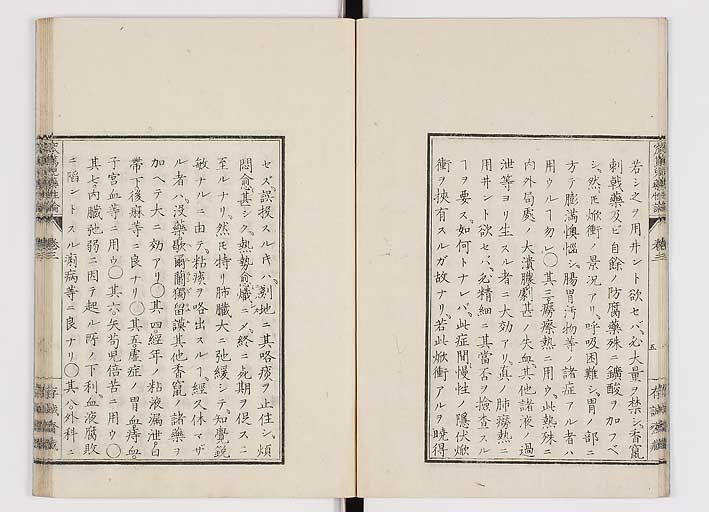 若シ之ヲ用井ント欲セバ、必大量ヲ禁シ、香竄
刺戟藥及ビ自餘ノ防腐藥殊ニ鑛酸ヲ加フベ
シ、然𪜈焮衝ノ景况アリ、呼吸困難シ、胃ノ部ニ
方テ膨滿懊惱シ、腸胃汚物等ノ諸症アル者ハ
用ウルヿ勿レ◯其三、癆瘵熱ニ用ウ、此熱殊ニ
内外局處ノ大潰膿劇甚ノ失血、其他諸液ノ過
泄等ヨリ生スル者ニ大効アリ、眞ノ肺癆熱ニ
用井ント欲セバ、必精細ニ其當否ヲ撿査スル
ヿヲ要ス、如何トナレバ、此症間慢性ノ隱伏焮
衝ヲ挾有スルガ故ナリ、若此焮衝アルヲ曉得
五
セズ、誤投スル𪜈ハ、剗地ニ其咯痰ヲ止住シ、煩
悶愈甚シク、熱勢愈熾ニメ、終ニ死期ヲ促スニ
至ルナリ、然𪜈特リ肺臓大ニ弛緩シテ、知覺鋭
敏ナルニ由テ、粘痰ヲ咯出スルヿ、經久休マザ
ル者ハ、没藥、歇爾蘭獨留謨其他香竄ノ諸藥ヲ
加ヘテ大ニ効アリ◯其四、經年ノ粘液漏泄、白
帶下、後痳等ニ良ナリ◯其五、虚症ノ胃血、痔血、
子宮血等ニ用ウ◯其六、矢苟兒倍苦ニ用ウ◯
其七、内臓弛弱ニ因テ起ル所ノ下利、血液腐敗
ニ陷ントスル痢病等ニ良ナリ◯其八、外科ニ